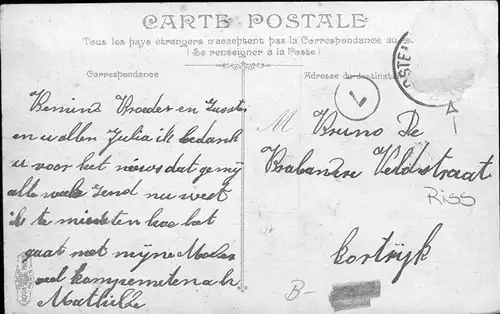 CARTE POSTALE
Tous les pays étrangers n'acceptent pas la Correspondance au
(Se renseigner à la Poste)
Correspondance
Adresse du destinataire
Beminde Broeder en Zuster
en u allen Julia ik bedank
u voor het nieuws dat gemy
alle weke zend nu weet
ik te minsten hoe het
gaat met myne Moeder
veel kompementen
Mathilde
M Bruno De
Brabandere Veldstraat
Kortryk
RISS
B-